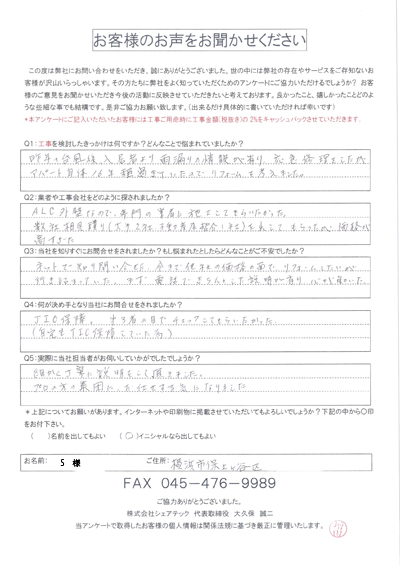 お客様のお声をお聞かせください
この度は弊社にお問い合わせをいただき、誠にありがとうございました。世の中には弊社の存在やサービスをご存知ないお
客様が沢山いらっしゃいます。その方たちに弊社をよく知っていただくためのアンケートにご協力いただけるでしょうか？ お客
様のご意見をお聞かせいただき今後の活動に反映させていただきたいと考えております。良かったこと、嬉しかったことどのよ
うな些細な事でも結構です。是非ご協力お願い致します。（出来るだけ具体的に書いていただければ幸いです）
*本アンケートにご記入いただいたお客様には工事ご用命時に工事金額(税抜き)の2%をキャッシュバックさせていただきます.
Q1:工事を検討したきっかけは何ですか？どんなことで悩まれていましたか？
昨年の台風後、入居者より雨漏りの情報が有り、応急修理をしたが
アパート自体16年経過していたのでリフォームを考えました。
Q2:業者や工事会社をどのように探されましたか？
ALC外壁なので、専門の業者に施工してもらいたかった。
数社相見積り
Q3:当社を知りすぐにお問合せをされましたか？もし悩まれたとしたらどんなことがご不安でしたか？
ネットで知り問い合せた。
Q4:何が決め手となり当社にお問合せをされましたか？
JIO保障、第3者の目でチェックしてもらいたかった。
(自宅もJIO保障していた為)
Q5:実際に当社担当者がお伺いしていかがでしたでしょうか？
細かく丁寧に説明をして頂きました。
プロの方の業者にお任せする気になりました
*上記についてお願いがあります。インターネットや印刷物に掲載させていただいてもよろしいでしょうか？下記の中から〇印
をお付下さい。
(　)名前を出してもよい (〇)イニシャルなら出してもよい
お名前: S 様 ご住所: 横浜市保土ヶ谷区
FAX 045-476-9989
ご協力ありがとうございました。
株式会社シェアテック 代表取締役 大久保 誠二
当アンケートで取得したお客様の個人情報は関係法規に基づき厳正に管理いたします。